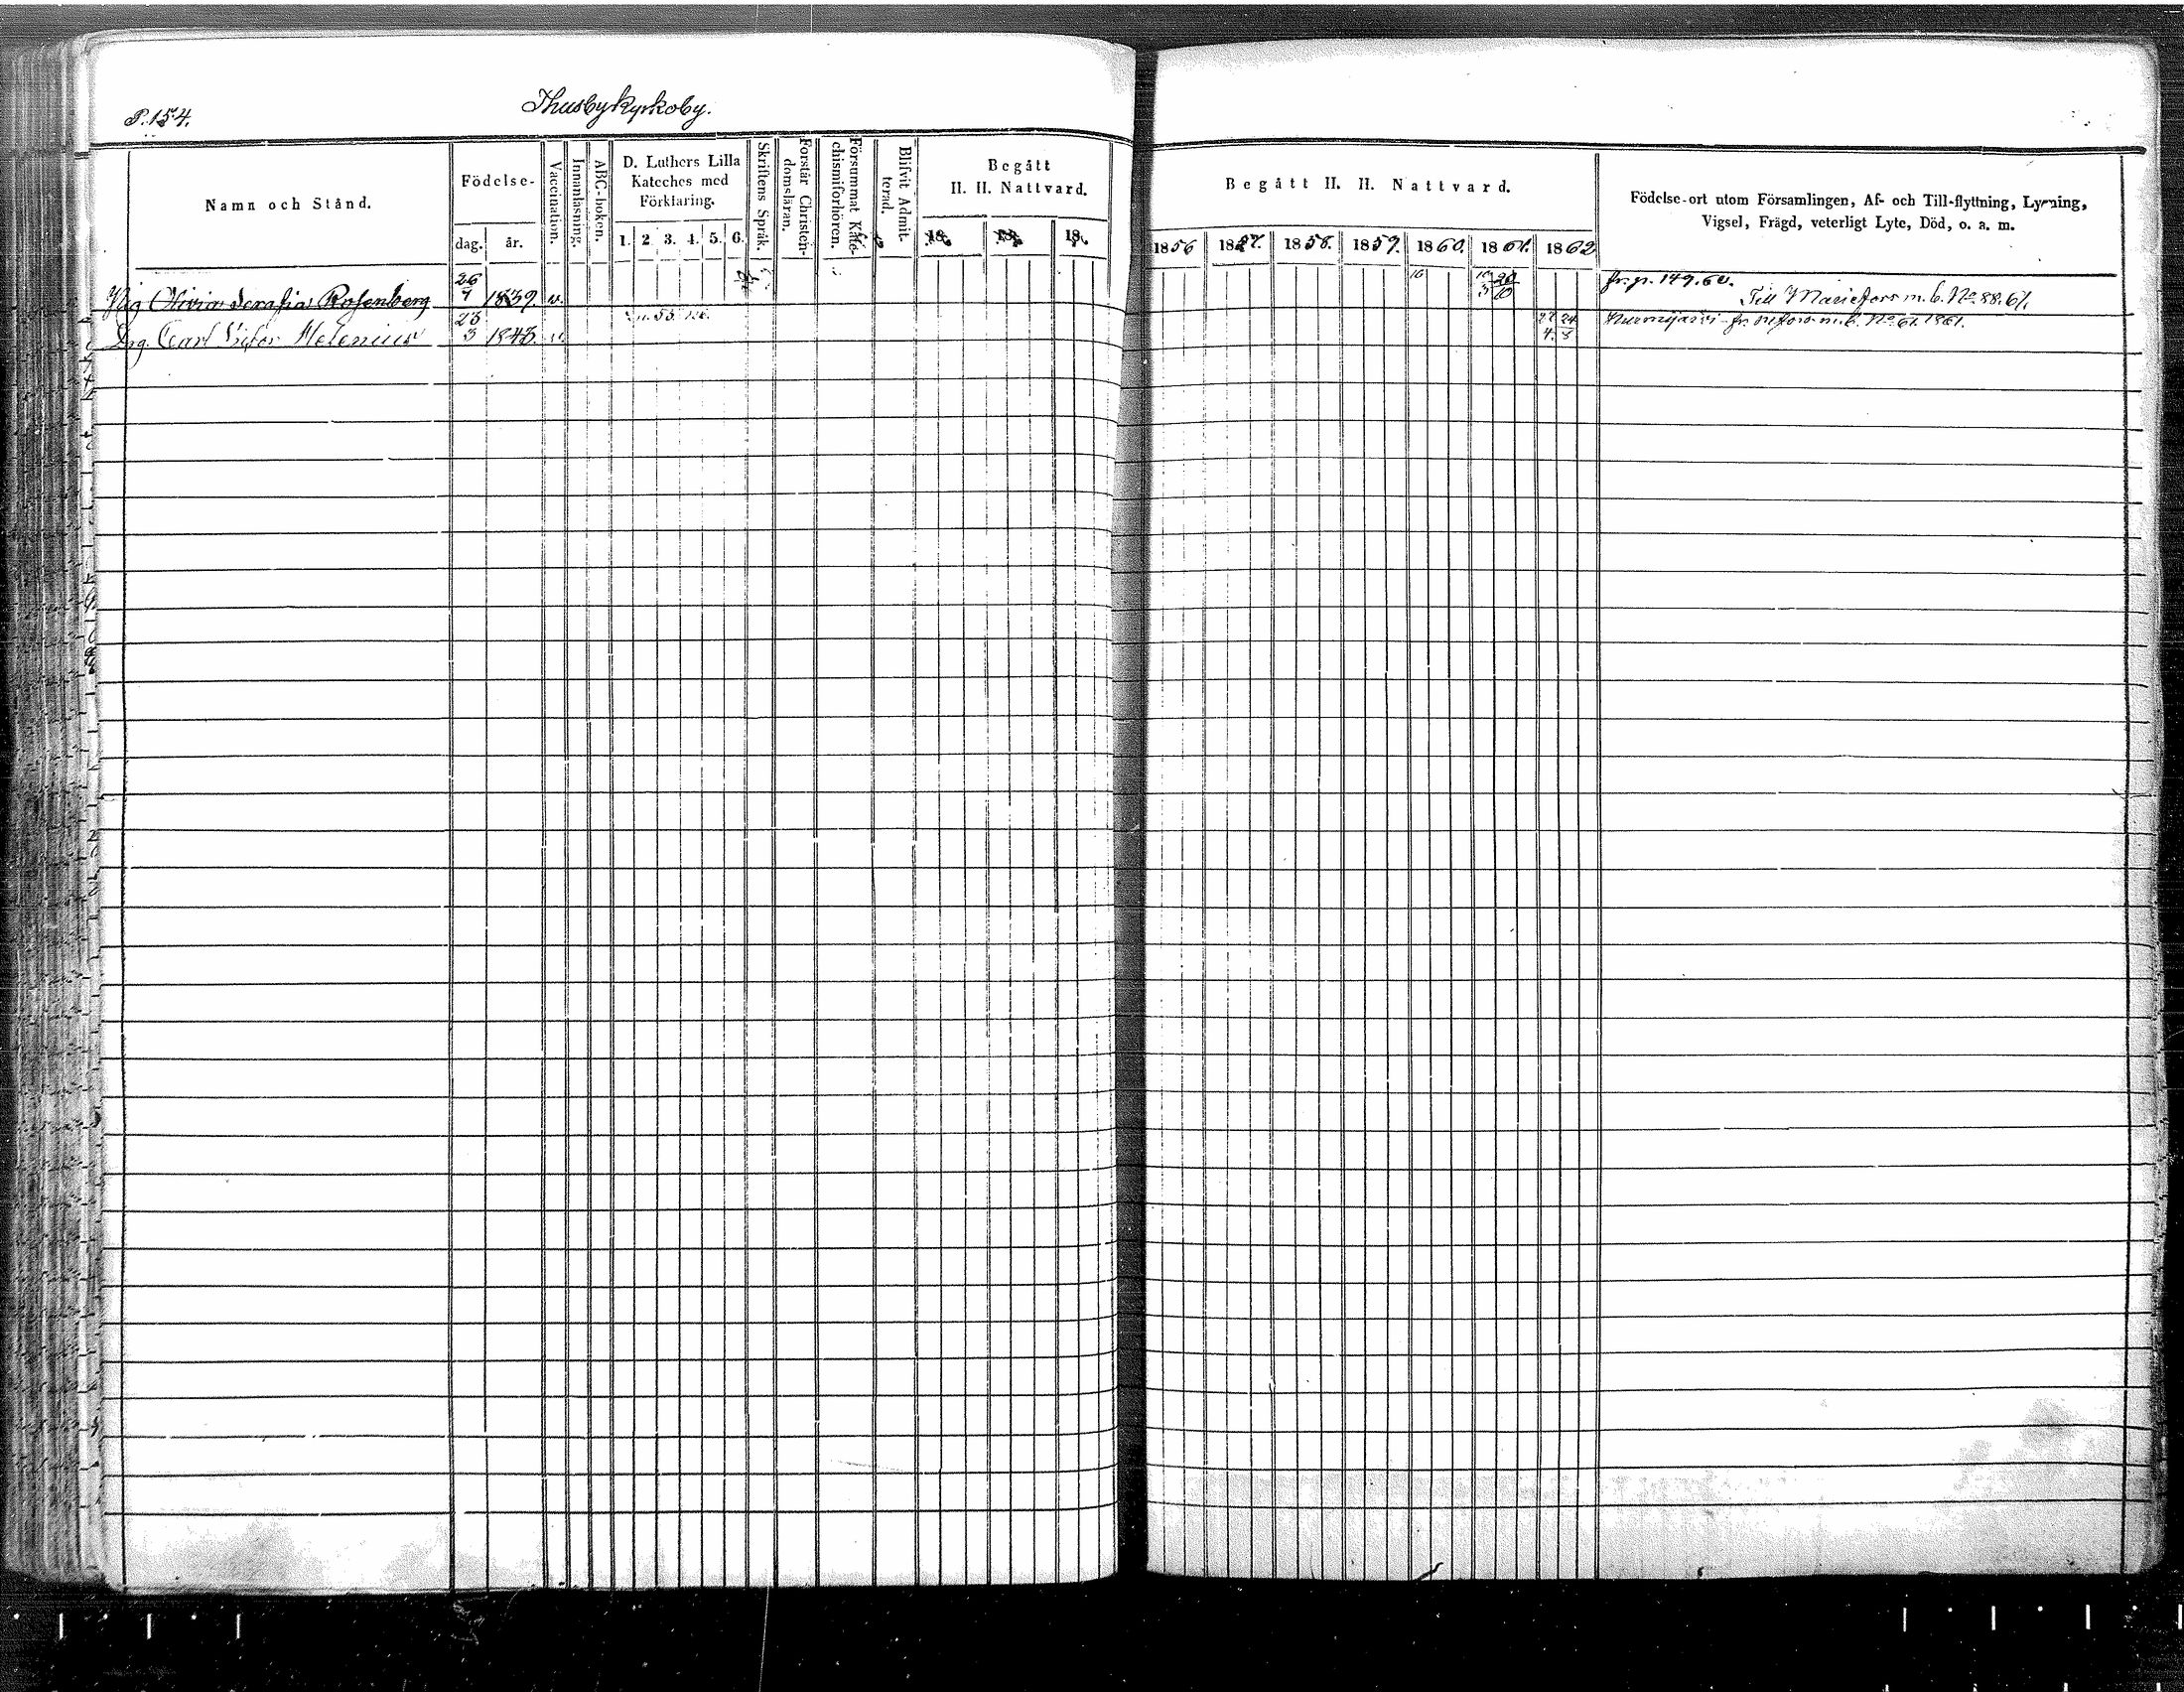 P. 154.
Thusby kyrkoby.
Namn och Stånd.
Födelse-
dag. år.
Vaccination.
Innanläsning.
ABC-boken.
D. Luthers Lilla
Kateches med
Förklaring.
1. 2. 3. 4. 5. 6.
Skriftens Språk.
Förstår Christen-
domsläran.
Försummat Kate-
chismiförhören.
Blifvit Admit-
terad.
Begått
H. H. Nattvard.
18 18 18
Begått H. H. Nattvard.
1856 1857. 1858. 1859. 1860. 1861. 1862
Födelse-ort utom Församlingen, Af- och Till-flyttning, Lysning,
Vigsel, Frägd, veterligt Lyte, Död, o. a. m.
Pig Olivia Serafia Rosenberg 26 1839. v. fr. p. 149. 60.
Till Mariefors m. b. No 88. 61.
Drg. Carl Victor Helenius 23 3 1843. v. 27 4. 24 5 Nurmijärvi fr. m. b. No 61. 1861.